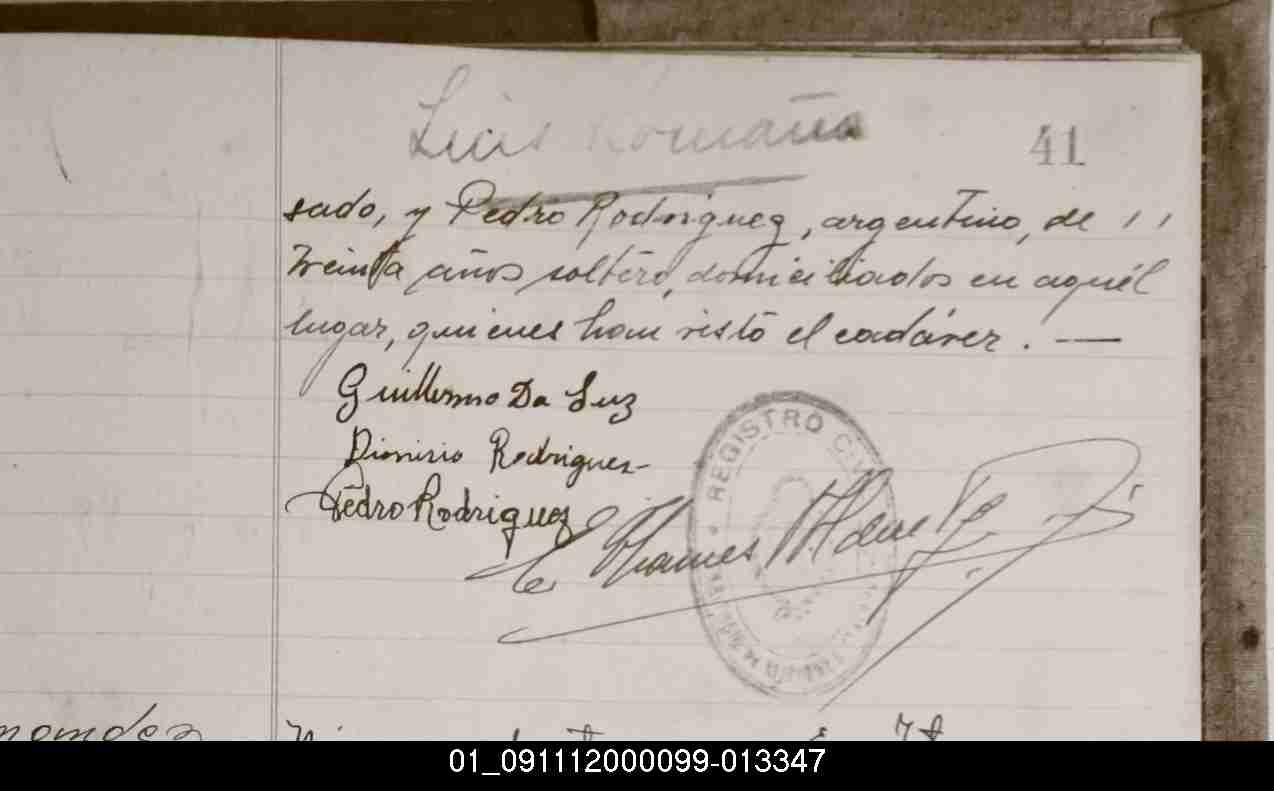 Luis Romaña
41
sado, y Pedro Rodriguez, argentino, de
treinta años soltero, domiciliados en aquél
lugar, quienes han visto el cadáver. —
Guillermo Da Luz
Dionisio Rodrigues
Pedro Rodriguez
REGISTRO CIV
01_091112000099-013347